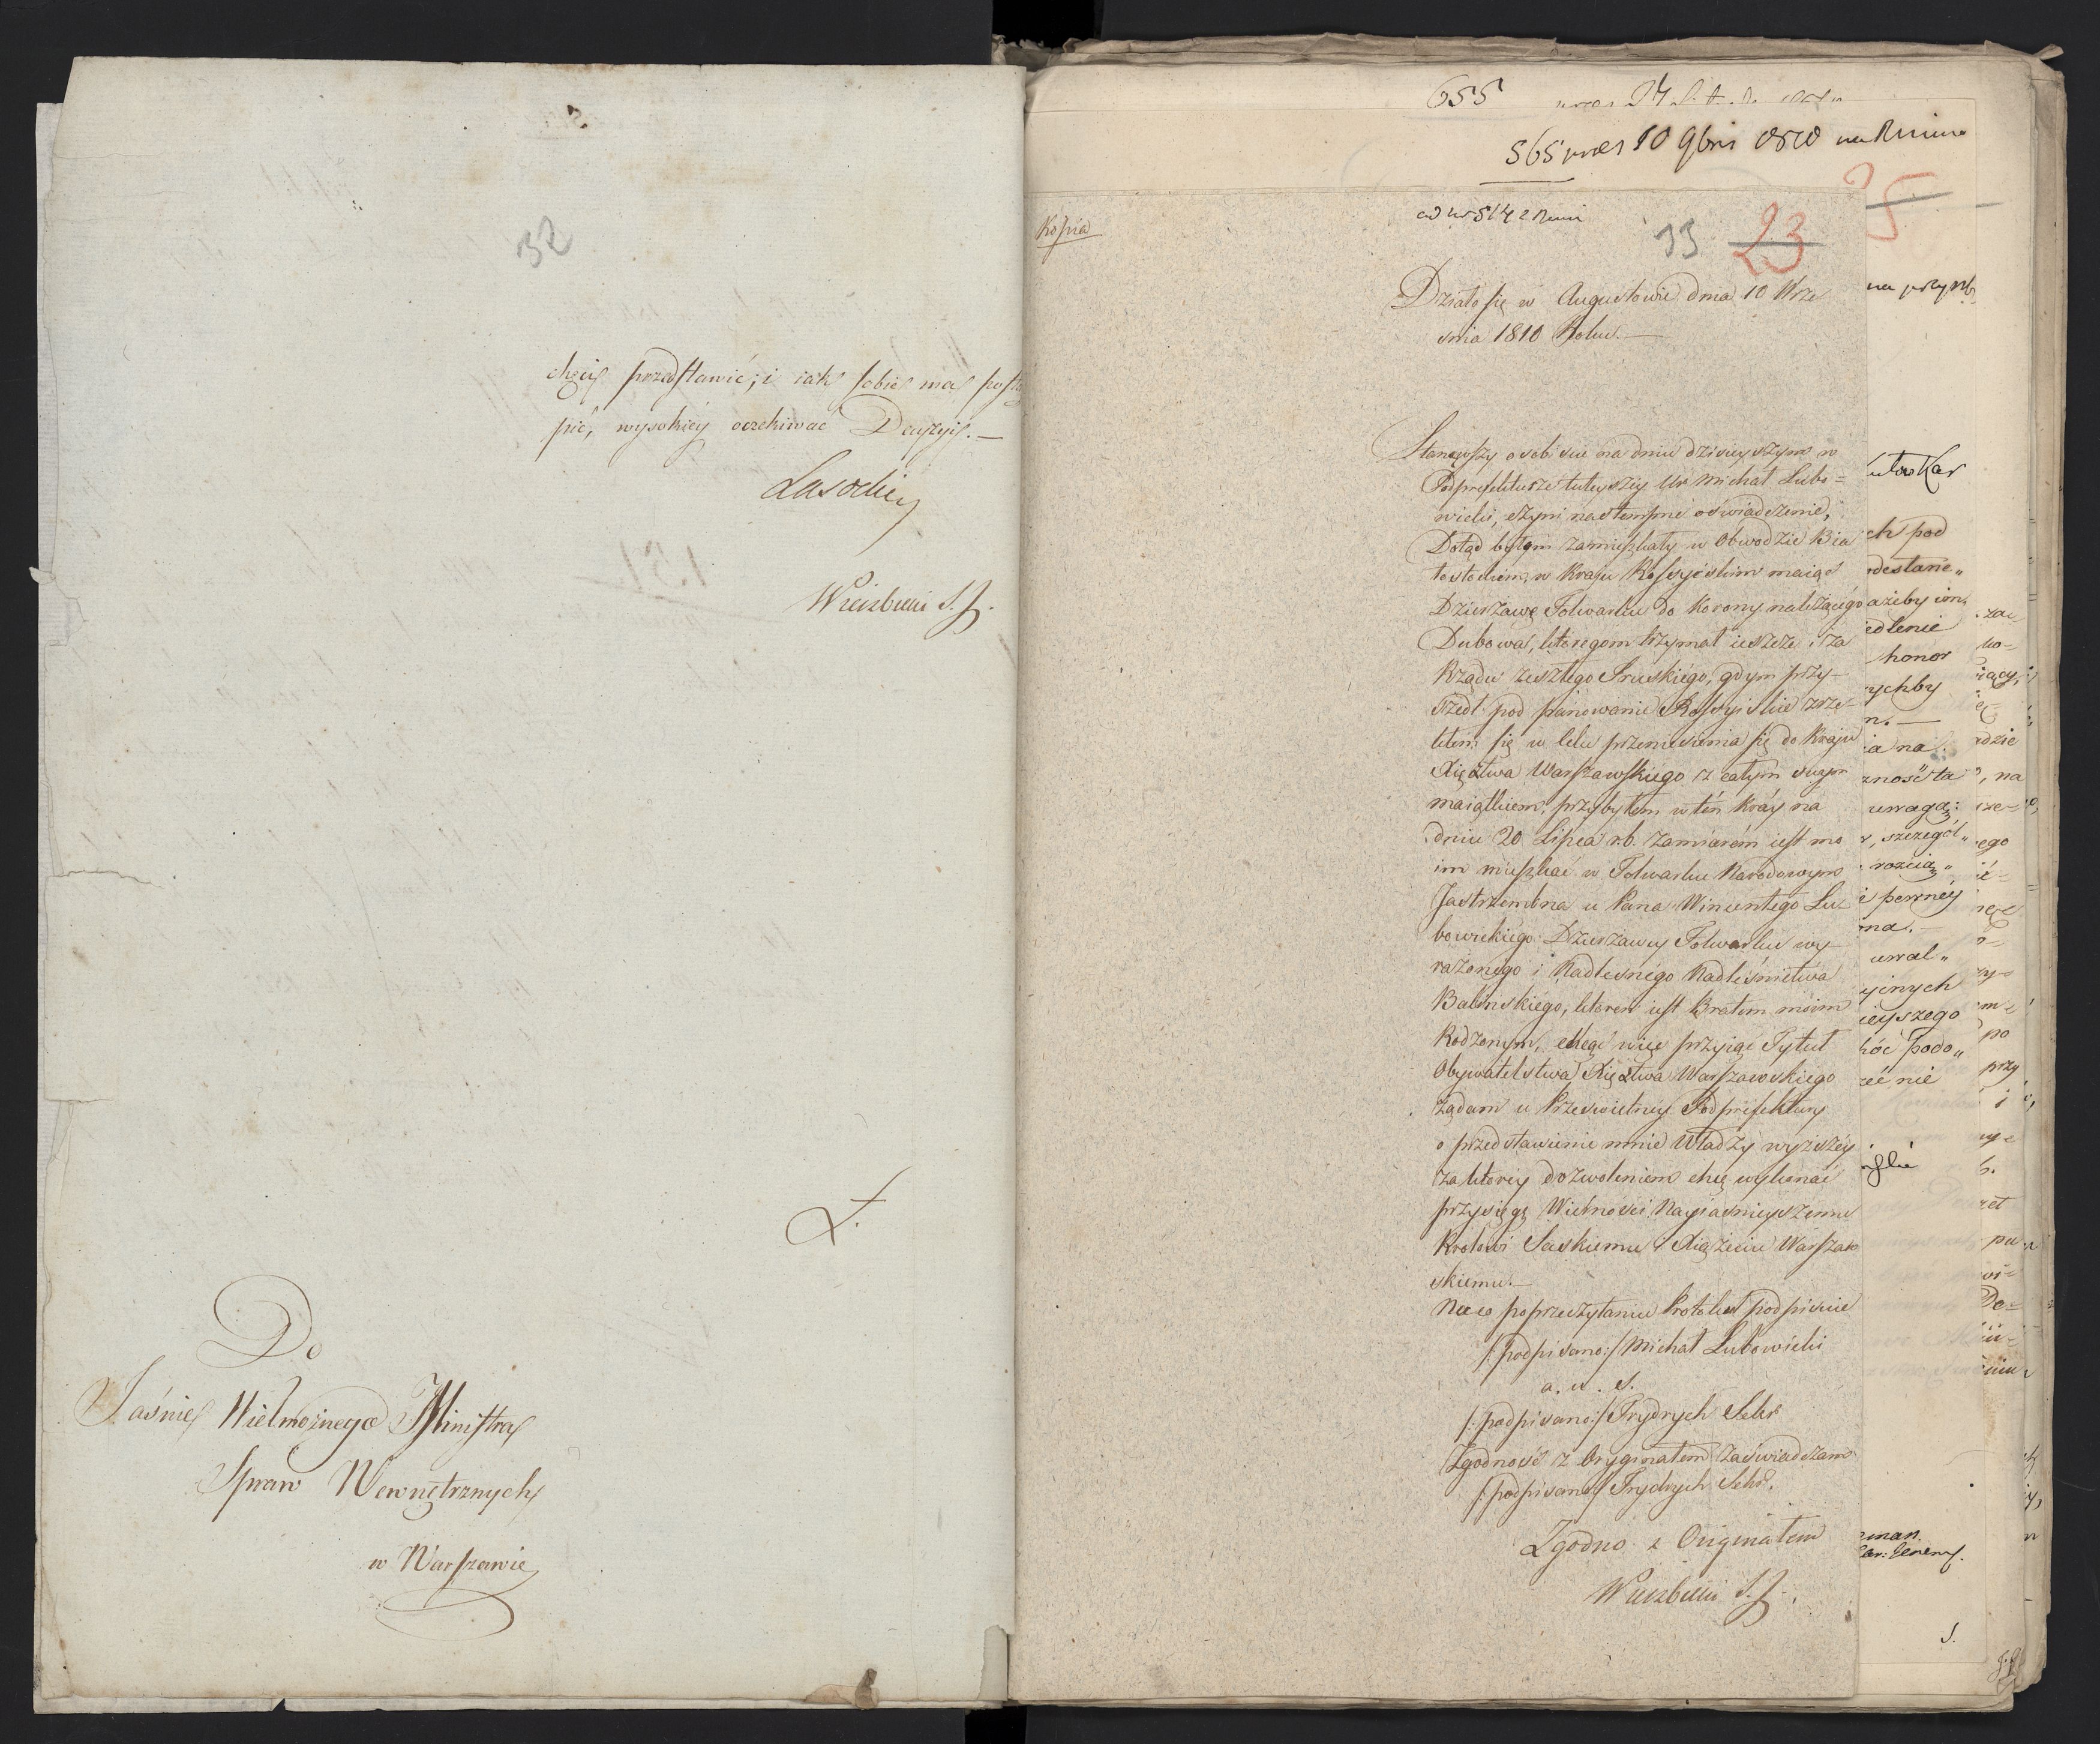 32
chcieć przedstawić; i iak sobie ma postą
pić, wysokiéy oczekiwać Decyzyi. —
Lasocki
Wierzbicki S. J.
Do
Jaśnie Wielmożnego Ministra
Spraw Wewnętrznych
w Warszawie
655
565 pres 10 9bris 1810
Kopia
33 23
Działo się w Augustowie dnia 10 Wrze
śnia 1810 Roku. —
Stanąwszy osobiście na dniu dzisieyszym w
Podprefekturze tuteyszéy Ur Michał Lubo=
wicki, czyni nastempne oświadczenie,
Dotąd byłem zamieszkały w Obwodzie Bia
łostockiem, w Kraju Rossyiskim maiąc
Dzierżawę Folwarku do Korony należącego
Dubowa, któregom trzymał ieszcze i za
Rządu zeszłego Pruskiego, gdym przy-
szedł pod panowanie Rossyiskie zrze-
kłem się w celu przeniesienia się do Kraju
Xięztwa Warszawskiego z całym swym
maiątkiem, przybyłem w tén kráy na
dniu 20 Lipca r.b. zamiarém iest mo
im mieszkać w Folwarku Narodowym
Jastrzembna u Pana Wincentego Lu-
bowickiego Dzierżawcy Folwarku wy-
rażonego i Nadleśnégo Nadleśnictwa
Balinskiego, któren iest Bratem moim
Rodzonym, chcąc więc przyiąć Tytuł
Obywatelstwa Xięztwa Warszawskiego
żądam u Prześwietney Podprefektury
o przedstawienie mnie Władzy wyższéy
za któréy dozwoleniem chcę wykonać
przysięgę Wiérności Nayiaśnieyszemu
Krolowi Saskiemu i Xiążęciu Warszaw
skiemu. —
Na co po przeczytaniu Protokuł podpisuie
/: podpisano :/ Michał Lubowicki
a. u. s.
/: podpisano :/ Frydrych Sekr
Zgodność z Oryginałem zaświadczam
/: podpisano :/ Frydrych Sekr.
Zgodno z Originałem
Wierzbicki S. J.